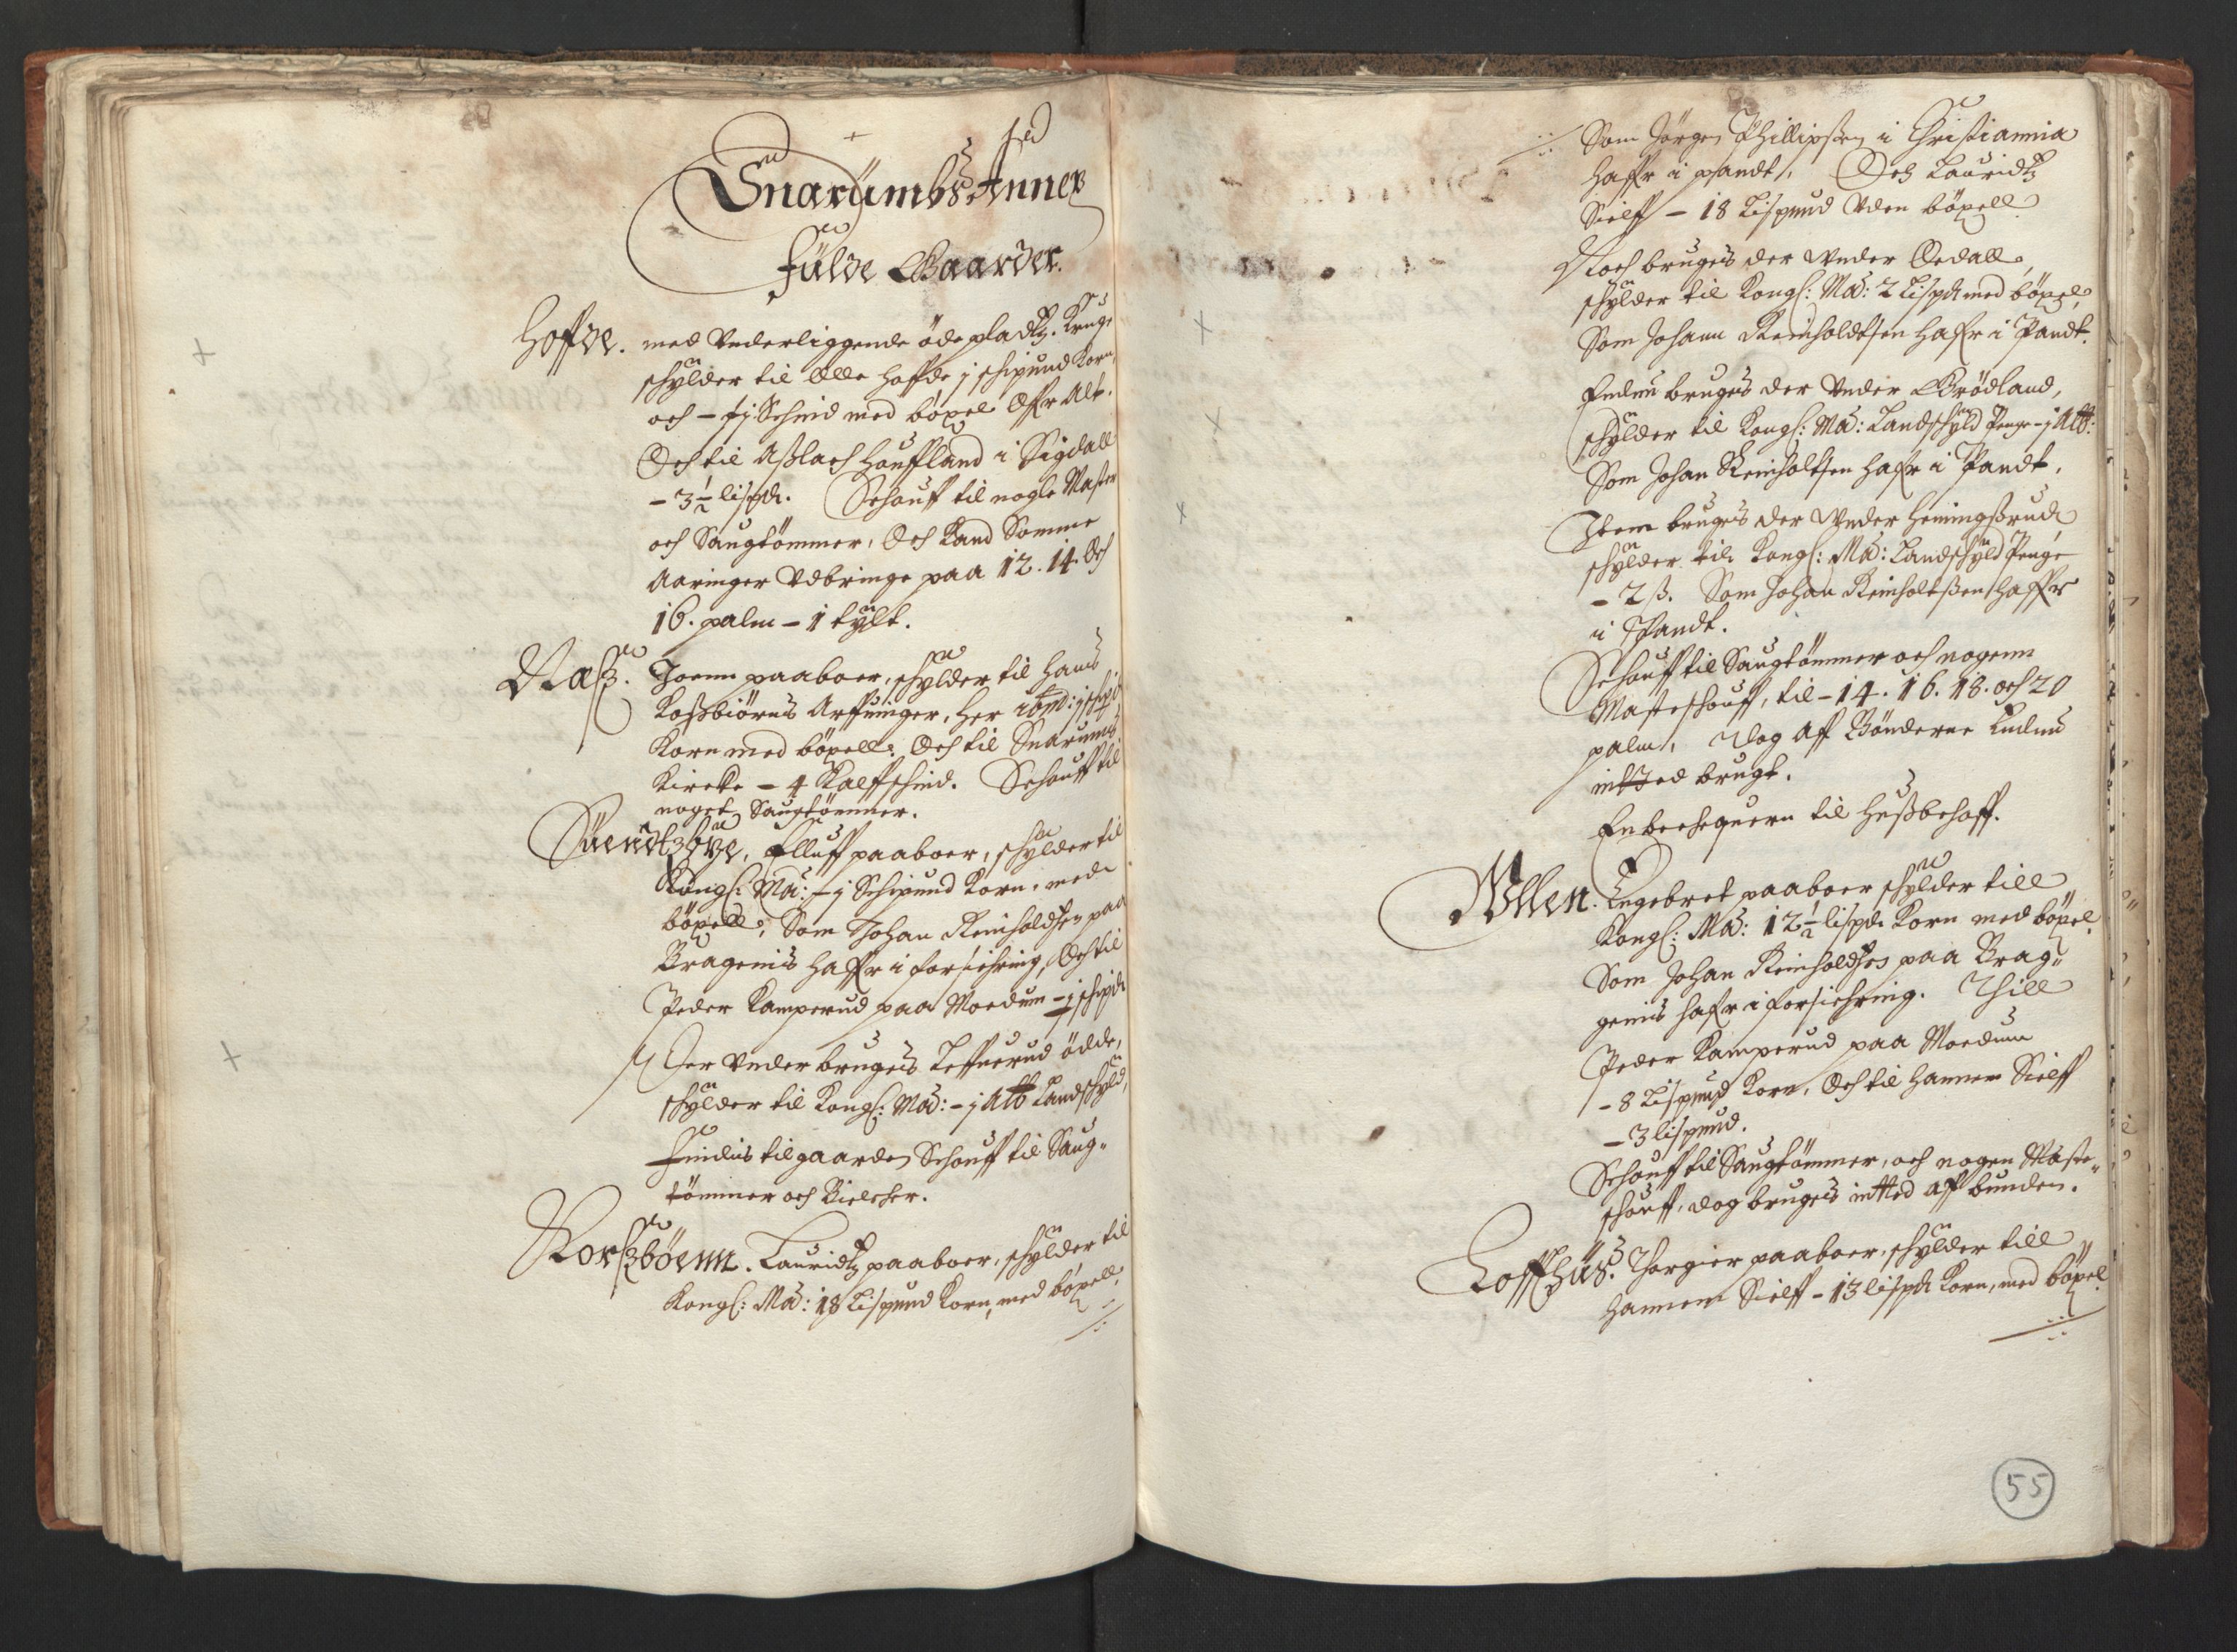 Snarumbs Anner
Fulde Gaarder.
Hoffde. med Vnderliggende öde pladtz. Kruge
schylder til Olle Hoffde j schipund Korn
och - ij Schind med böxel Offr Alt.
Och til Aßlach Houffland i Sigdall
- 3½ lispd. Schouf til nogle Master
och Saugtömmer, Och Kand Somme
Aaringer Vdbringe paa 12. 14. Och
16. palm - 1 tylt.
Næß. Joenn paaboer, schylder til Hans
Koßbiörns Arffuinger, her ibid: j schpd
Korn med böxell, Och til Snarums
Kircke - 4 Kalffschind. Schouff til
noget Saugtömmer.
Suendtzbye, Elluff paaboer, schylder til
Kongl: Ma: - j Schipund Korn, med
böxell, Som Johan Reinholdsen paa
Bragenis haffr i forsichring, Och til
Peder Kamperud paa Moedum - j schpd
Der vnder brugis Leffuerud ödde,
schylder til Kongl: Ma: - j Att Landschyld,
Findis til gaarden Schouff til Saug-
tömmer och Bielcker.
Korßböenn. Lauridtz paaboer, schylder til
Kongl: Ma: 18 Lispund Korn, med böxell,
Som Jörgen Phillipsen i Christiannia
haffr i pandt, Och Lauridtz
Sielff - 18 Lispund Vden böxell
Noch brugis der vnder Ødall,
schylder til Kongl: Ma: 2 Lispd med böxel,
Som Johann Reinholdtsen hafr i Pandt.
Endnu brugis der Vnder Brødland,
schylder til Kongl: Ma: Landschyld Penge - j Att:
Som Johan Reinholtsen hafr i Pandt,
Item brugis der Vnder Heningßrud
schylder til Kongl: Ma: Landschyld Penge
- 2 ß. Som Johan Reinholtßen haffr
i Pandt.
Schouff til Saugtömmer och nogenn
Masteschouff, til - 14. 16. 18. och 20
palm, dog aff Bönderne Endnu
intted brugt.
En beckequern til Hußbehoff.
Vllen. Engebret paaboer schylder till
Kongl: Ma: 12½ lispd Korn med böxel,
Som Johan Reinholdsen paa Brag-
genis hafr i forsichring. Till
Peder Kamperud paa Moedum
- 8 Lispund Korn, Och til hannem Sielff
- 3 lispund.
Schouff til Saugtömmer, och nogen Maste-
schouff, dog brugis intted aff bunden.
Loffthus. Thorgier paaboer, schylder till
hannem Sielff - 13 lispd Korn, med böxel
55